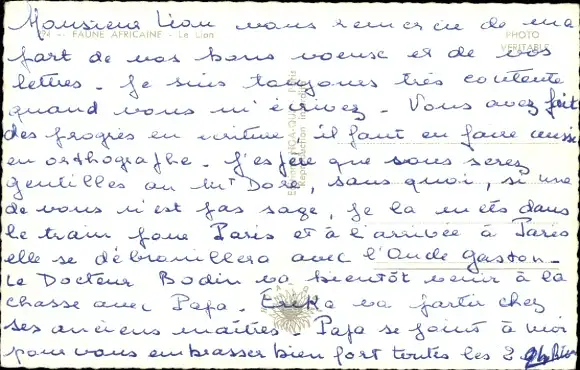 Monsieur Lion vous remercie de ma
94 — FAUNE AFRICAINE - Le Lion
PHOTO
VÉRITABLE
part de vos bons voeux et de vos
lettres. Je suis toujours très contente
quand vous m'écrivez. Vous avez fait
des progrès en écriture, il faut en faire aussi
en orthographe. J'espère que vous serez
gentilles au Mt Dore, sans quoi, si une
de vous n'est pas sage, je la mets dans
le train pour Paris et à l'arrivée à Paris
elle se débrouillera avec l'Oncle Gaston.
Le Docteur Bodin va bientôt venir à la
chasse avec Papa. Erika va partir chez
ses anciens maîtres. Papa se joint à moi
pour vous embrasser bien fort toutes les 2